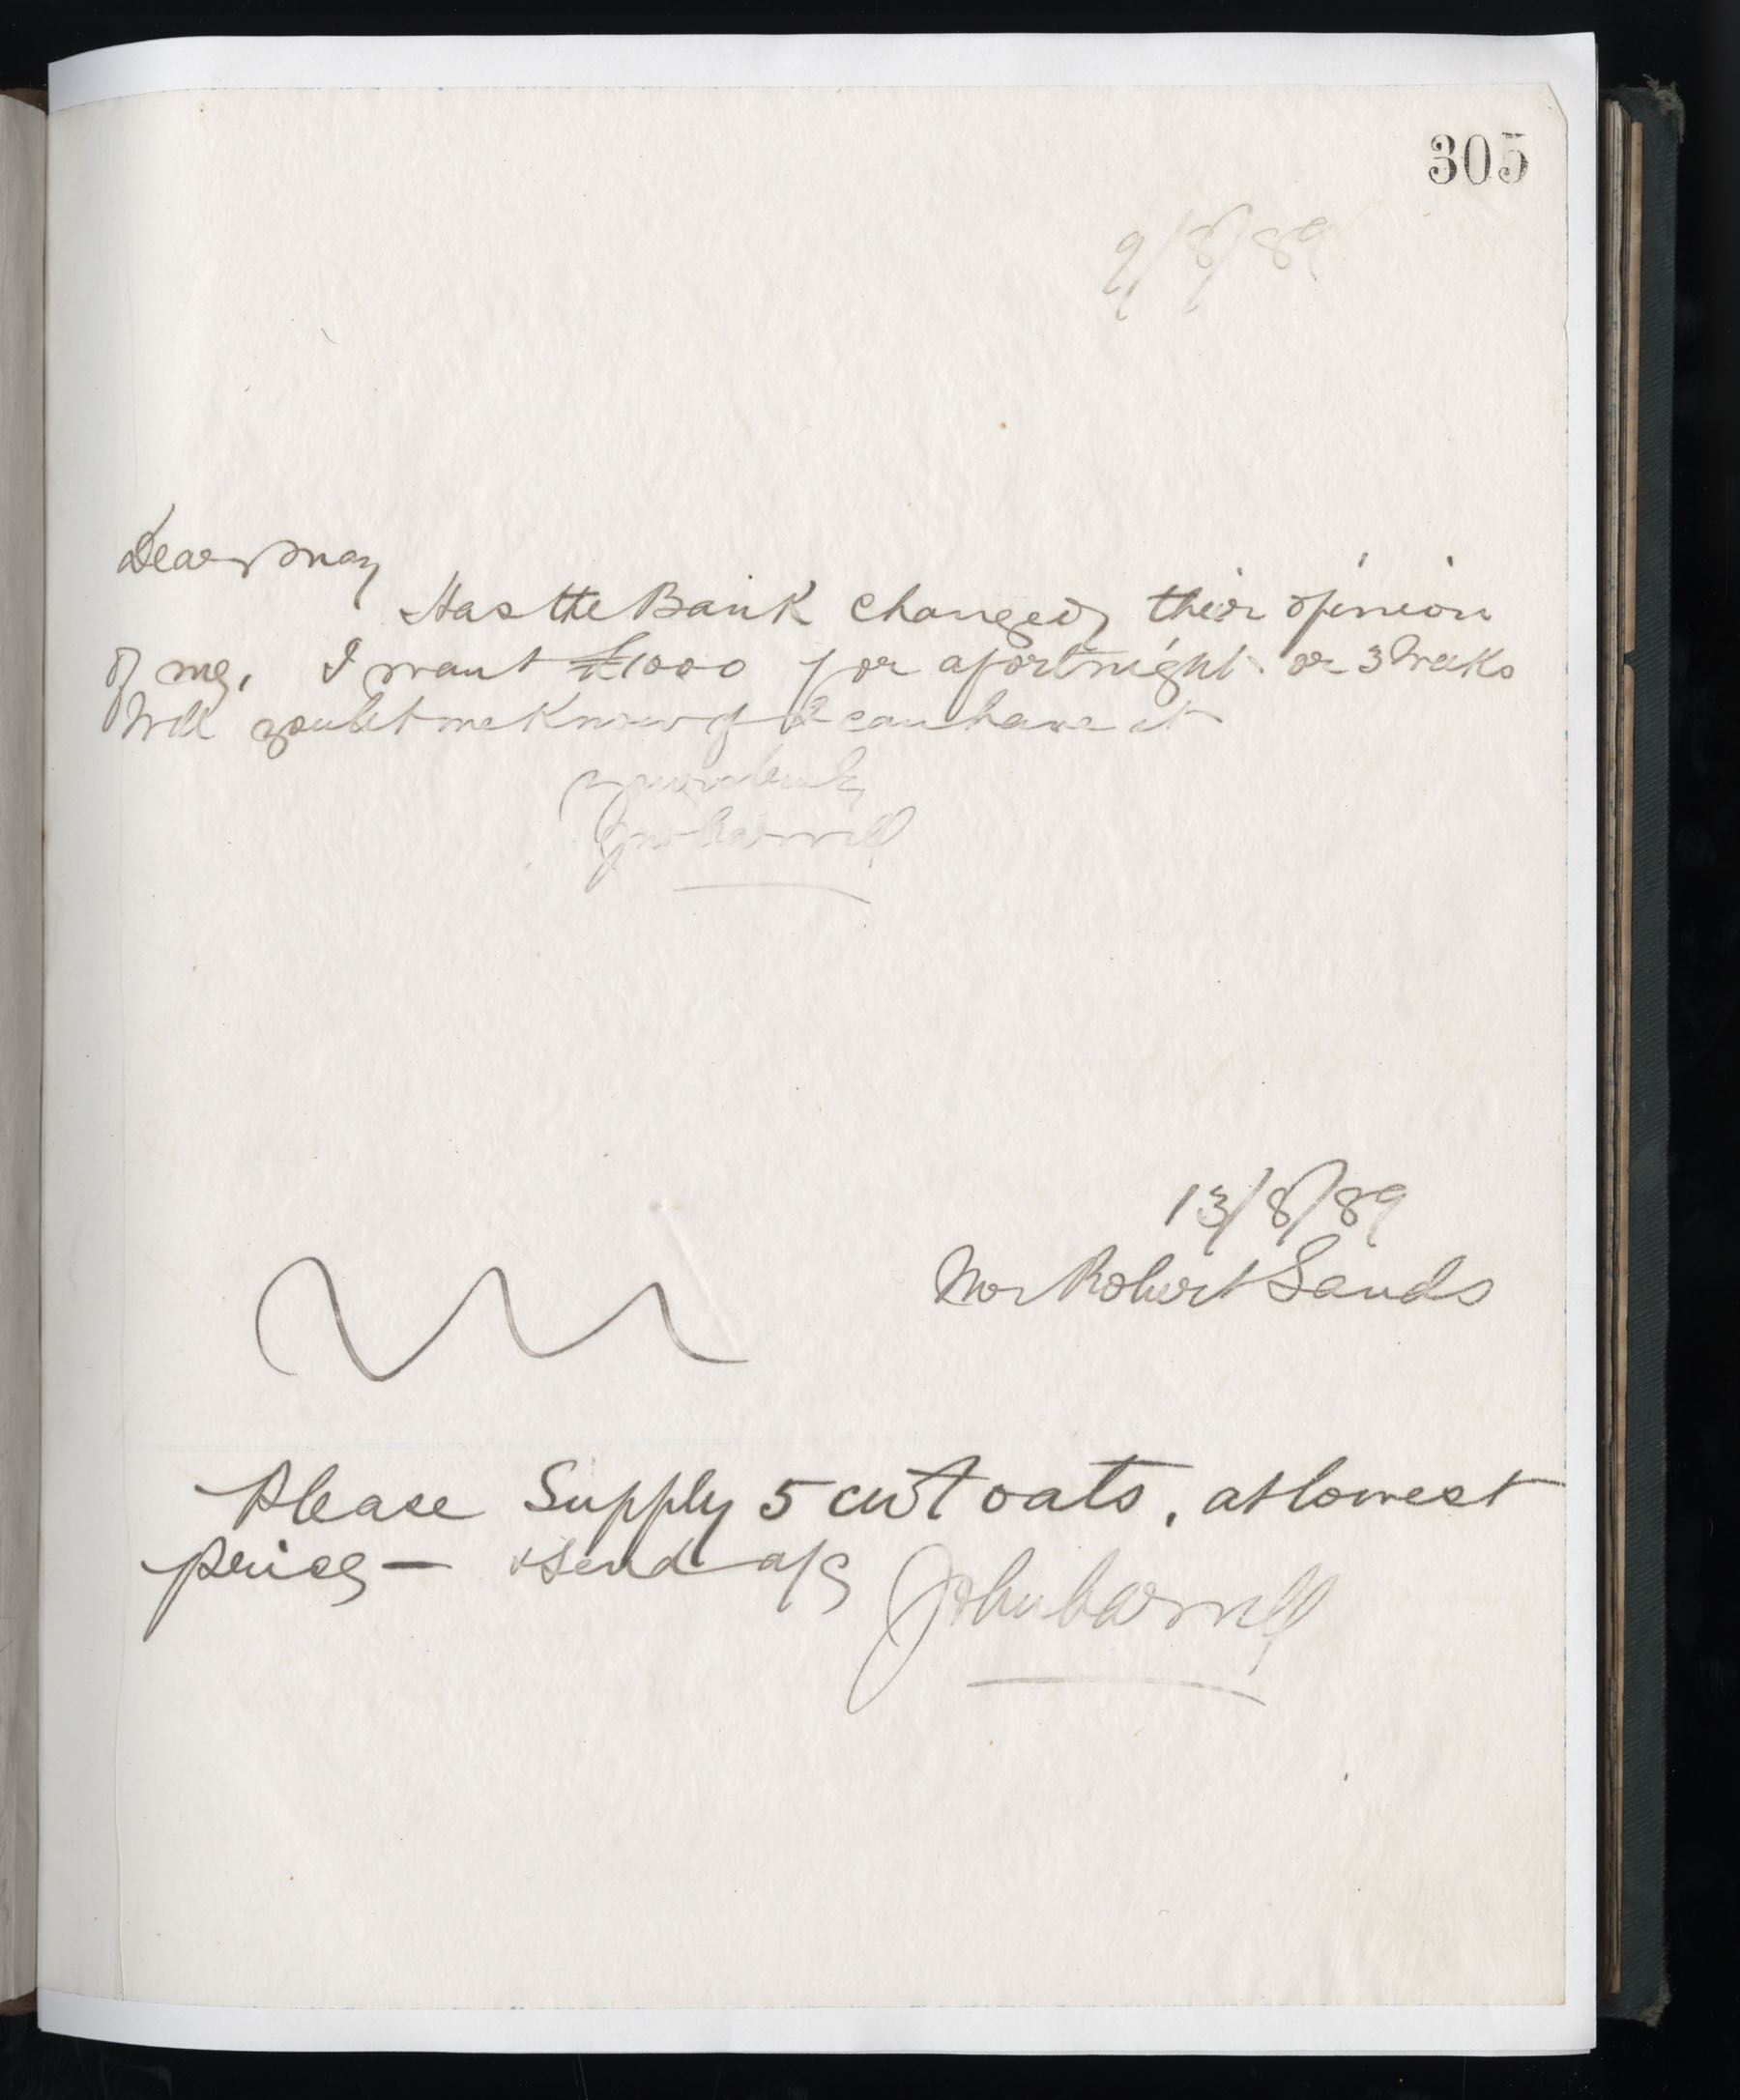 305
9/8/89
Dear May
Has the Bank changed their opinion
of me, I want £1000 for a fortnight or 3 Weeks
Will you let me know if I can have it
yours truly
Jno
13/8/89
Mr Robert Sands
Please Supply 5 cwt oats, at lowest
price — & send a/c John